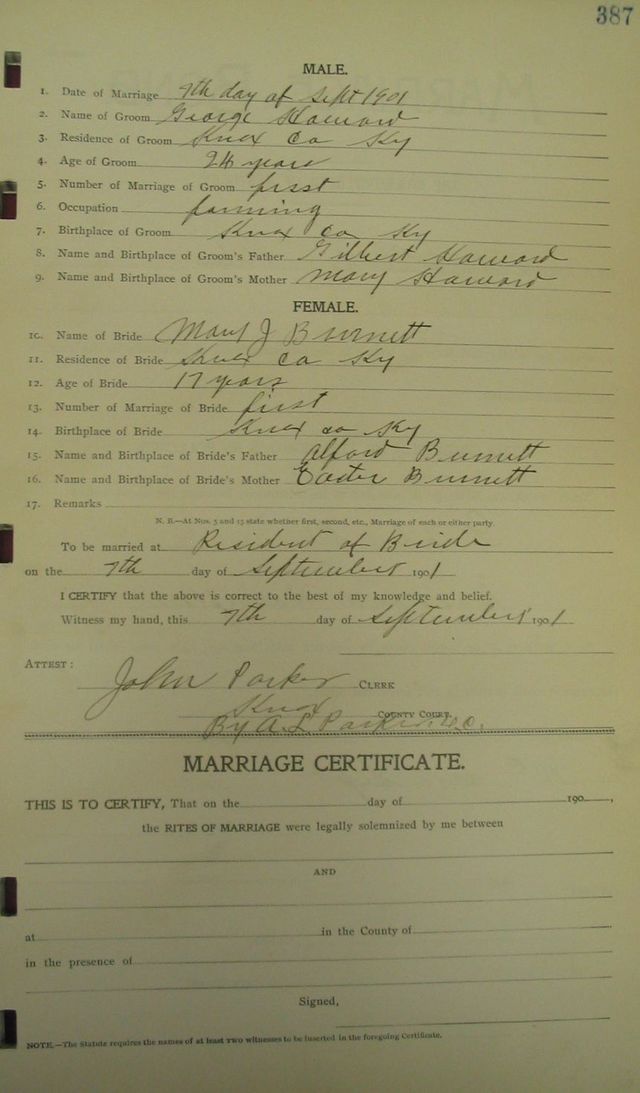 387
MALE.
1. Date of Marriage 7th day of Sept 1901
2. Name of Groom George Howard
3. Residence of Groom Knox Co Ky
4. Age of Groom 24 years
5. Number of Marriage of Groom first
6. Occupation farming
7. Birthplace of Groom Knox Co Ky
8. Name and Birthplace of Groom's Father Gilbert Howard
9. Name and Birthplace of Groom's Mother Mary Howard
FEMALE.
10. Name of Bride Mary J Burnett
11. Residence of Bride Knox Co Ky
12. Age of Bride 17 years
13. Number of Marriage of Bride first
14. Birthplace of Bride Knox Co Ky
15. Name and Birthplace of Bride's Father Alford Burnett
16. Name and Birthplace of Bride's Mother Easter Burnett
17. Remarks
N. B.—At Nos. 5 and 13 state whether first, second, etc., Marriage of each or either party.
To be married at Resident of Bride
on the 7th day of September 1901
I CERTIFY that the above is correct to the best of my knowledge and belief.
Witness my hand, this 7th day of September 1901
ATTEST:
John Parker CLERK
Knox COUNTY COURT.
By A. L. Parker D.C.
MARRIAGE CERTIFICATE.
THIS IS TO CERTIFY, That on the day of 190 ,
the RITES OF MARRIAGE were legally solemnized by me between
AND
at in the County of
in the presence of
Signed,
NOTE.—The Statute requires the names of at least two witnesses to be inserted in the foregoing Certificate.